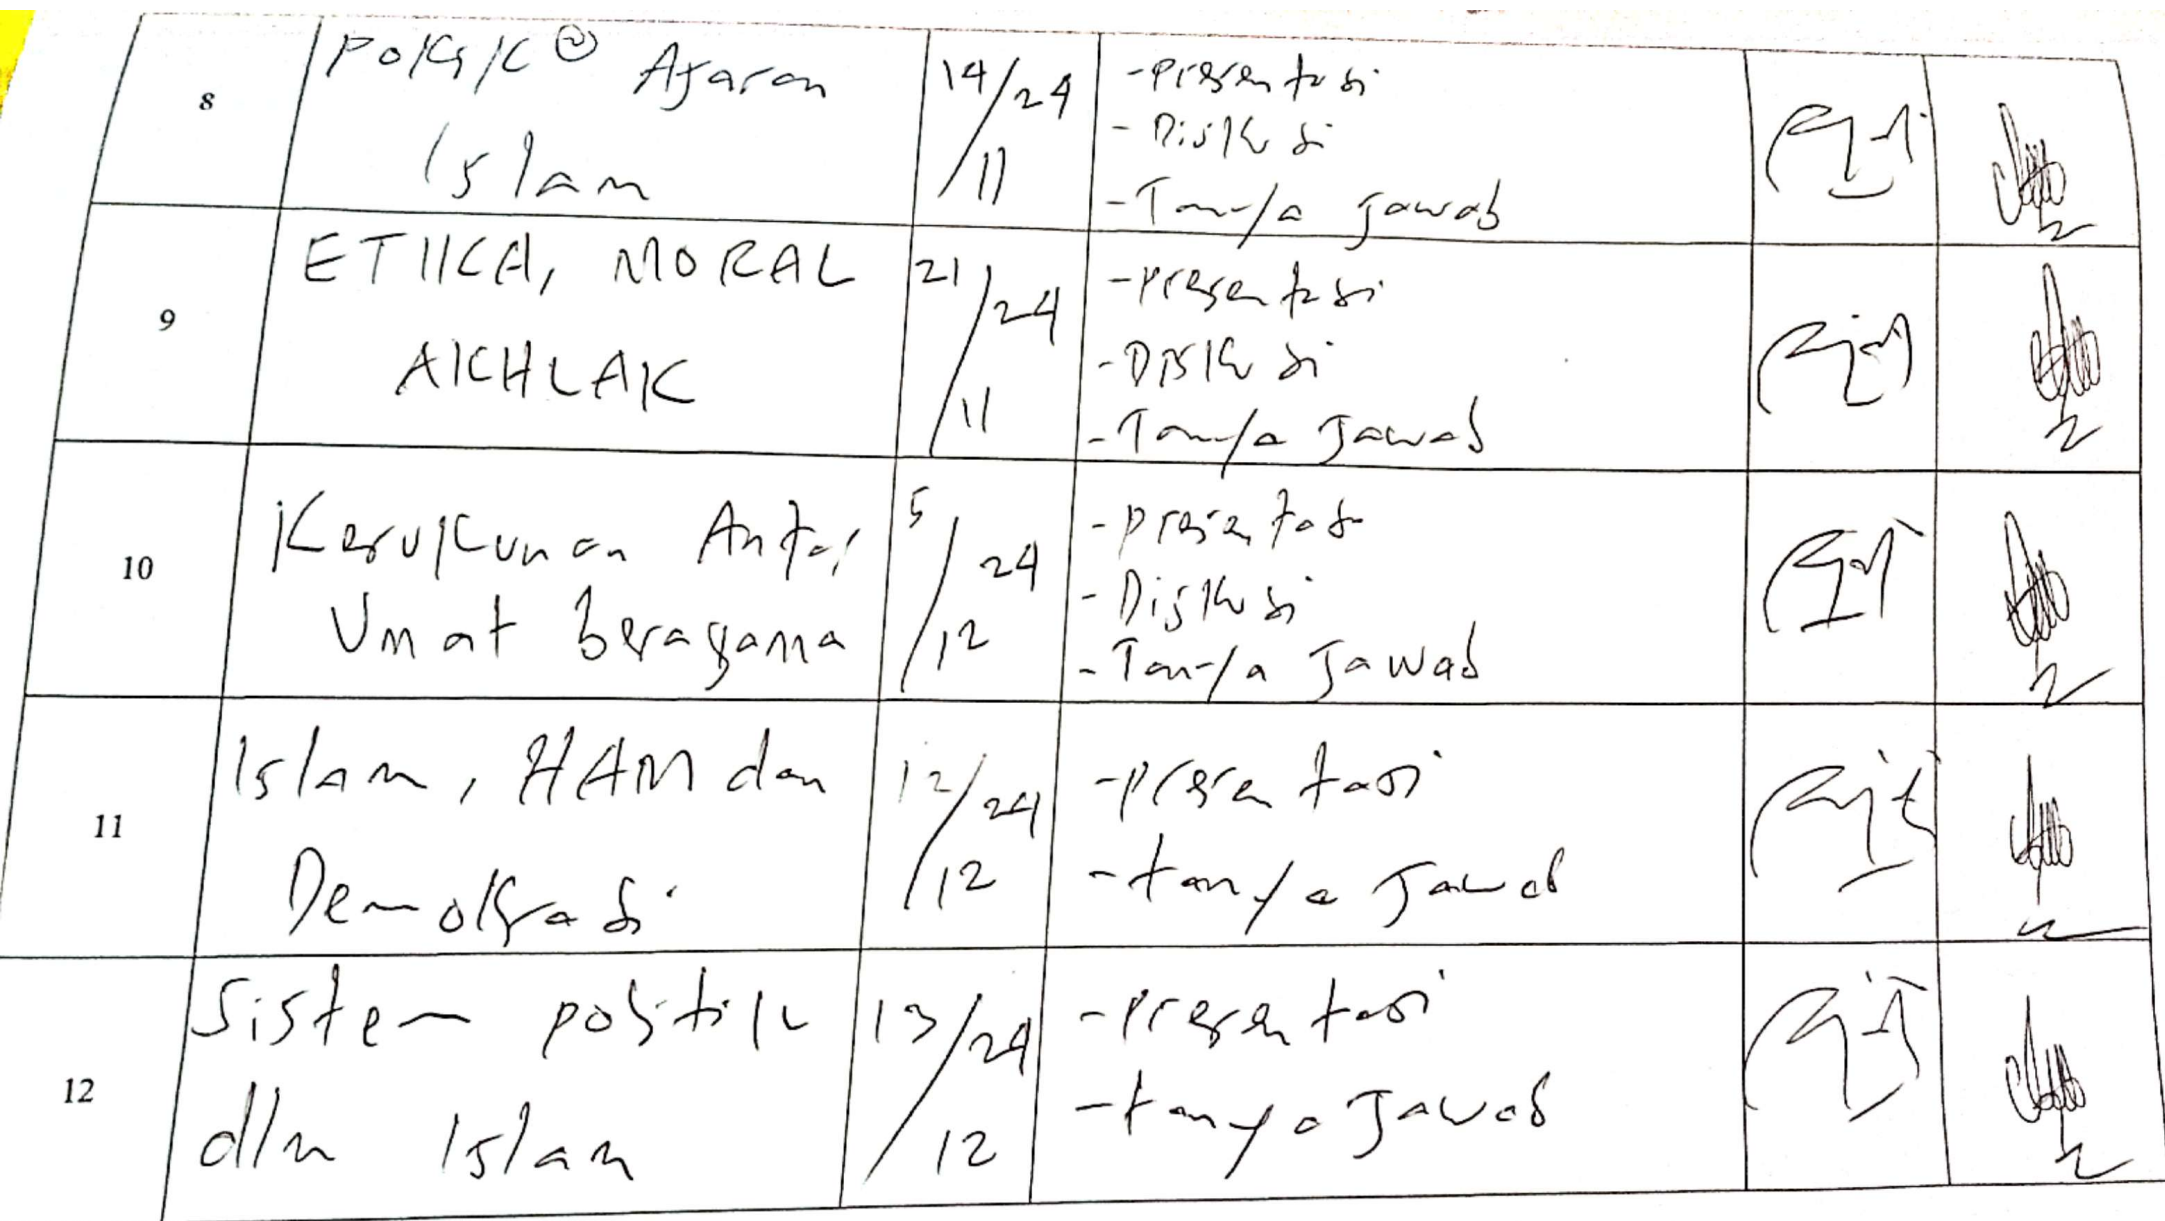 8
Pokok② Ajaran
Islam
14/24
/11
-Presentasi
- Diskusi
-Tanya Jawab
9
ETIKA, MORAL
AKHLAK
21/24
/11
-Presentasi
-Diskusi
-Tanya Jawab
10
Kerukunan Antar
Umat Beragama
5/24
/12
-Presentasi
-Diskusi
-Tanya Jawab
11
Islam, HAM dan
Demokrasi
12/24
/12
-Presentasi
-tanya Jawab
12
Sistem politik
dlm Islam
13/24
/12
-Presentasi
-tanya Jawab